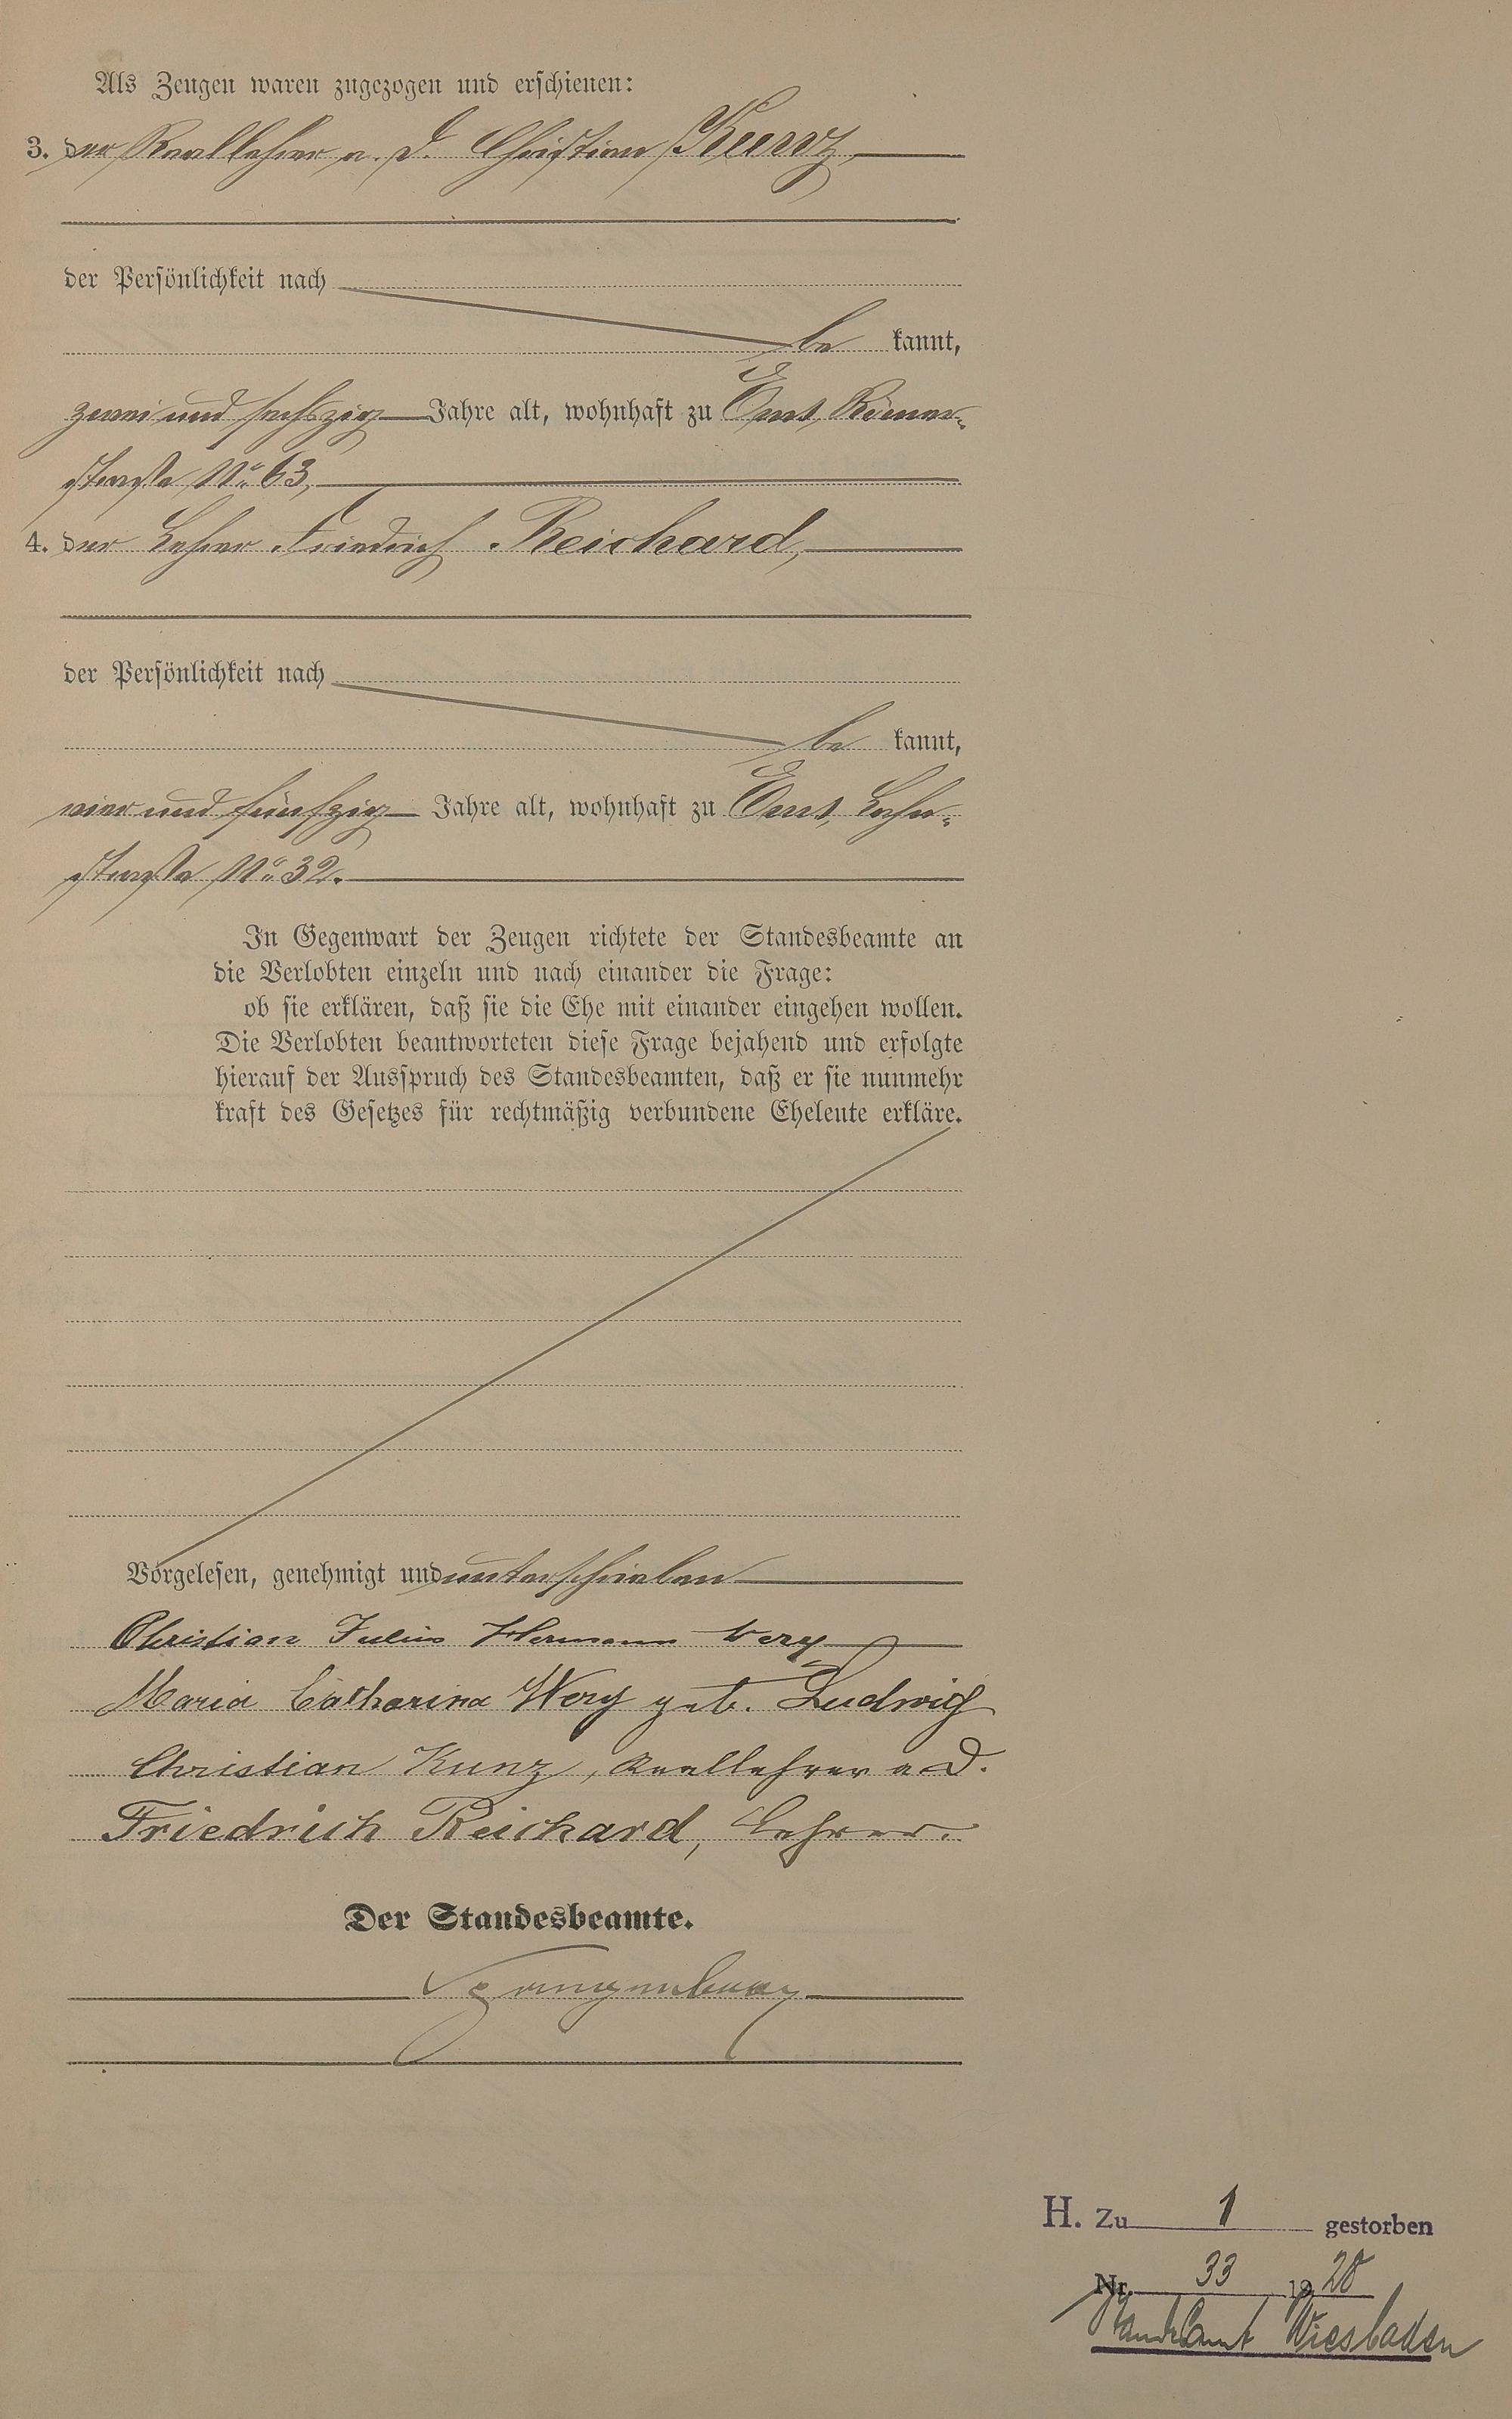 Als Zeugen waren zugezogen und erschienen:
3. der Reallehrer a. D. Christian Kunz,
der Persönlichkeit nach
be kannt,
zwei und sechszig Jahre alt, wohnhaft zu Ems, Römer-
straße No 63,
4. der Lehrer Friedrich Reichard,
der Persönlichkeit nach
be kannt,
vier und fünfzig Jahre alt, wohnhaft zu Ems, Lahn-
straße No 32.
In Gegenwart der Zeugen richtete der Standesbeamte an
die Verlobten einzeln und nach einander die Frage:
ob sie erklären, daß sie die Ehe mit einander eingehen wollen.
Die Verlobten beantworteten diese Frage bejahend und erfolgte
hierauf der Ausspruch des Standesbeamten, daß er sie nunmehr
kraft des Gesetzes für rechtmäßig verbundene Eheleute erkläre.
Vorgelesen, genehmigt und unterschrieben
Christian Julius Hermann Wery
Maria Catharina Wery geb. Ludwig
Christian Kunz, Reallehrer a. D.
Friedrich Reichard, Lehrer.
Der Standesbeamte.
Spangenberg
H. Zu 1 gestorben
Nr. 33 1928
Standesamt Wiesbaden